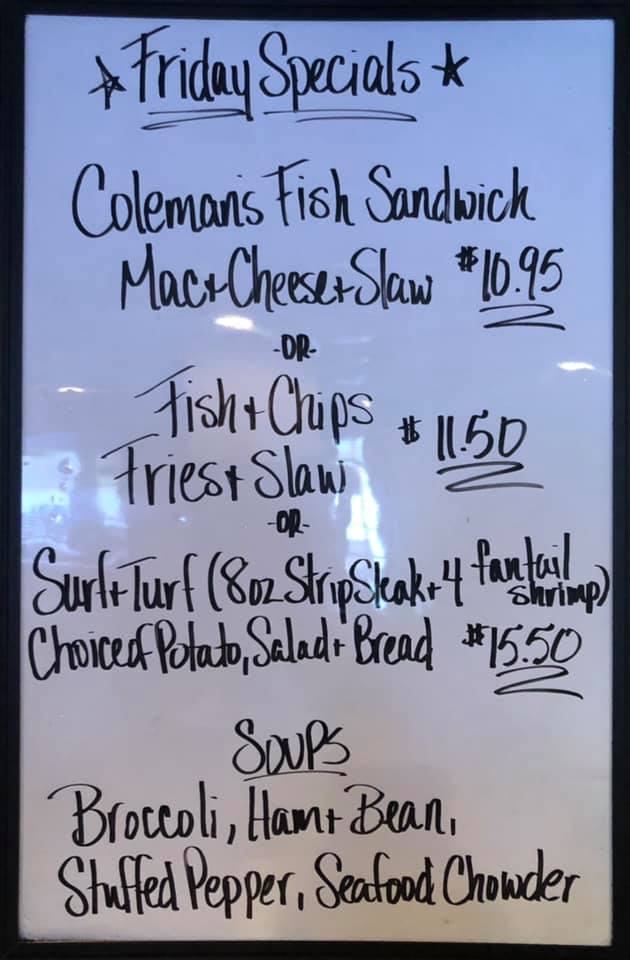 ☆ Friday Specials ☆
Coleman's Fish Sandwich
Mac + Cheese + Slaw $10.95
-OR-
Fish + Chips
Fries + Slaw $11.50
-OR-
Surf + Turf (8oz Strip Steak + 4 fantail shrimp)
Choice of Potato, Salad + Bread $15.50
Soups
Broccoli, Ham + Bean,
Stuffed Pepper, Seafood Chowder